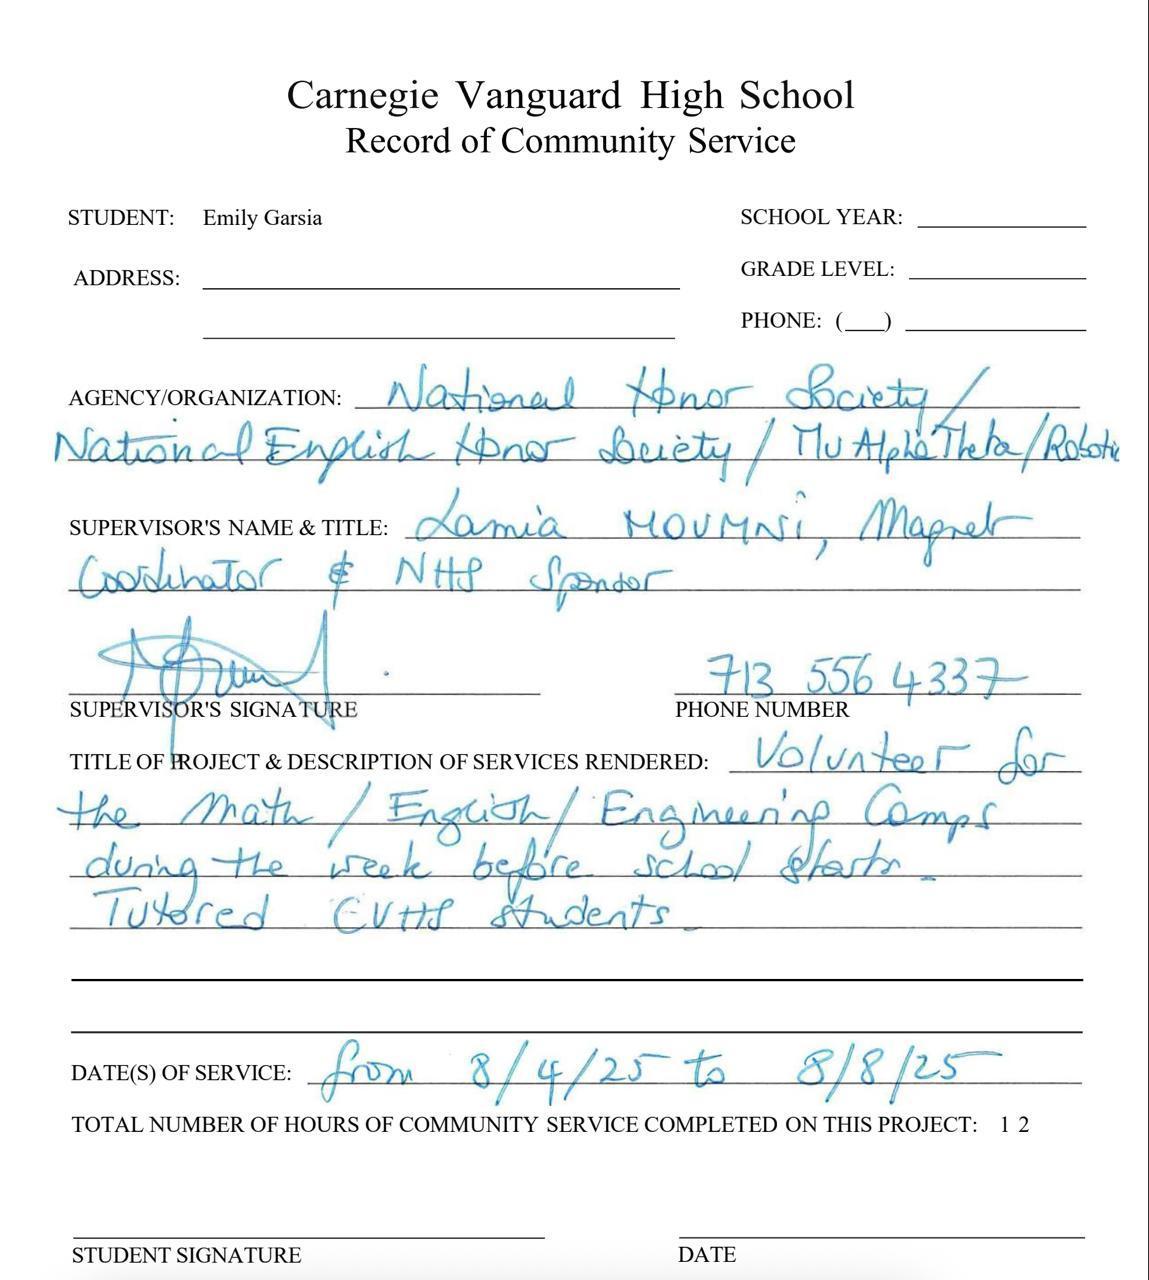 Carnegie Vanguard High School
Record of Community Service
STUDENT: Emily Garsia
SCHOOL YEAR:
ADDRESS:
GRADE LEVEL:
PHONE: (___)
AGENCY/ORGANIZATION: National Honor Society/
National English Honor Society / Mu Alpha Theta/Robotic
SUPERVISOR'S NAME & TITLE: Lamia MOUMNi, Magnet
Coordinator & NHS Sponsor
713 556 4337
SUPERVISOR'S SIGNATURE
PHONE NUMBER
TITLE OF PROJECT & DESCRIPTION OF SERVICES RENDERED: Volunteer for
the Math / English / Engineering Camps
during the week before school starts.
Tutored CVHS students.
DATE(S) OF SERVICE: from 8/4/25 to 8/8/25
TOTAL NUMBER OF HOURS OF COMMUNITY SERVICE COMPLETED ON THIS PROJECT: 1 2
STUDENT SIGNATURE
DATE